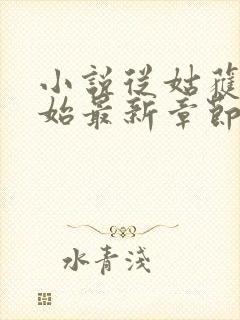 小說從姑蘇
始最新章節
水青淺